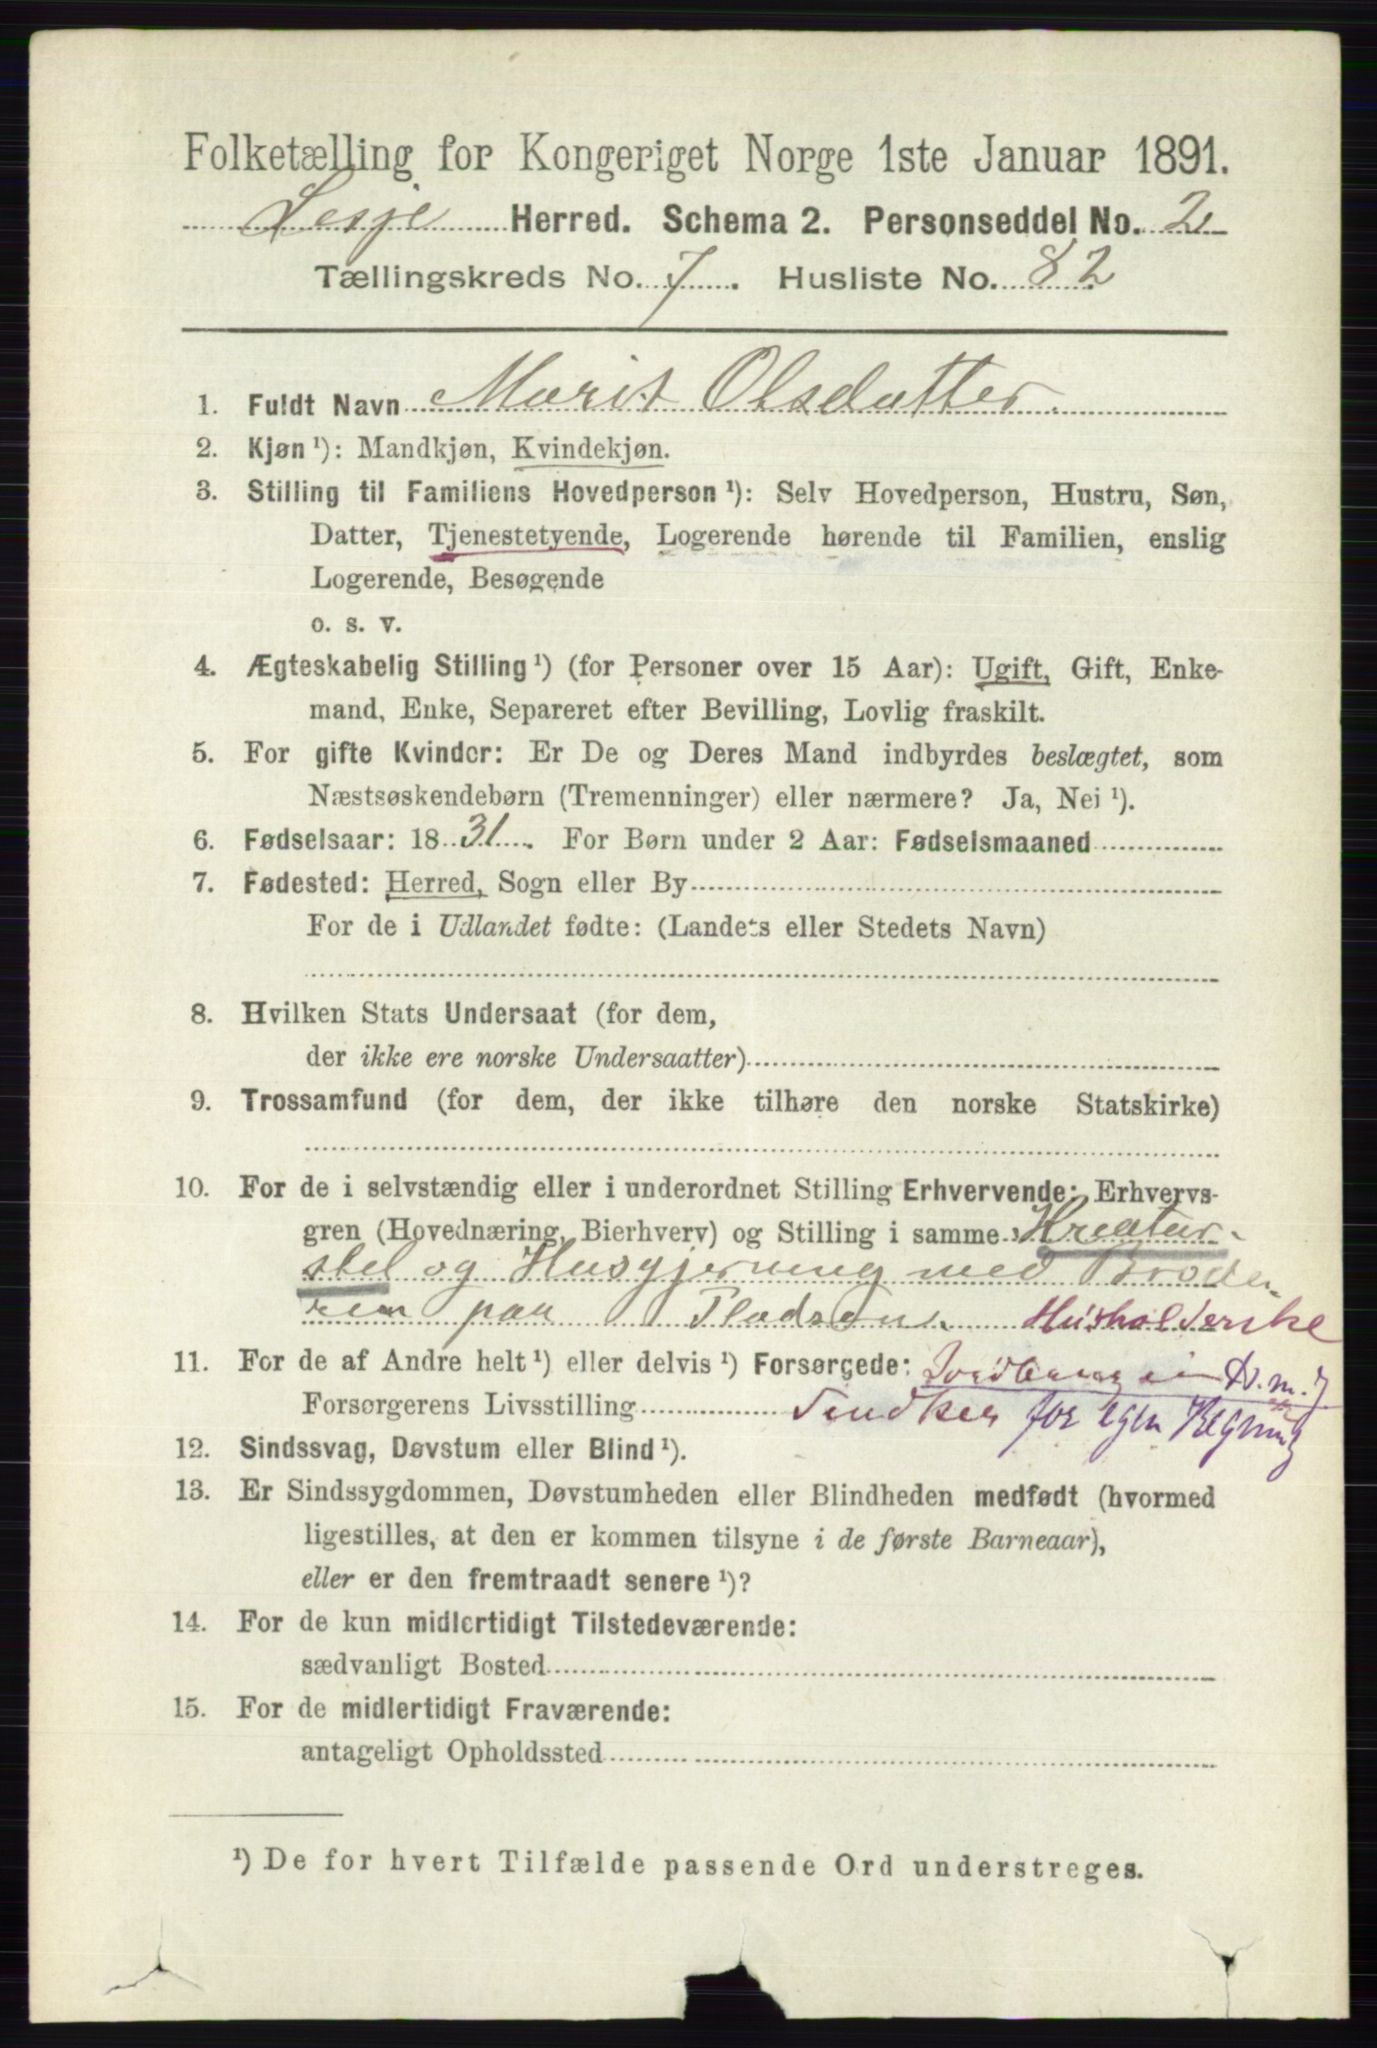 Folketælling for Kongeriget Norge 1ste Januar 1891.
Lesje Herred. Schema 2. Personseddel No. 2
Tællingskreds No. 7. Husliste No. 82
1. Fuldt Navn Marit Olsdatter.
2. Kjøn ¹): Mandkjøn, Kvindekjøn.
3. Stilling til Familiens Hovedperson ¹): Selv Hovedperson, Hustru, Søn,
Datter, Tjenestetyende, Logerende hørende til Familien, enslig
Logerende, Besøgende
o. s. v.
4. Ægteskabelig Stilling ¹) (for Personer over 15 Aar): Ugift, Gift, Enke-
mand, Enke, Separeret efter Bevilling, Lovlig fraskilt.
5. For gifte Kvinder: Er De og Deres Mand indbyrdes beslægtet, som
Næstsøskendebørn (Tremenninger) eller nærmere? Ja, Nei ¹).
6. Fødselsaar: 1831. For Børn under 2 Aar: Fødselsmaaned
7. Fødested: Herred, Sogn eller By
For de i Udlandet fødte: (Landets eller Stedets Navn)
8. Hvilken Stats Undersaat (for dem,
der ikke ere norske Undersaatter)
9. Trossamfund (for dem, der ikke tilhøre den norske Statskirke)
10. For de i selvstændig eller i underordnet Stilling Erhvervende: Erhvervs-
gren (Hovednæring, Bierhverv) og Stilling i samme Kreatur-
stel og Husgjerning med Brode-
ren paa Pladsen. Husholderske
11. For de af Andre helt ¹) eller delvis ¹) Forsørgede: D. m. J
Forsørgerens Livsstilling for egen Regning
12. Sindssvag, Døvstum eller Blind ¹).
13. Er Sindssygdommen, Døvstumheden eller Blindheden medfødt (hvormed
ligestilles, at den er kommen tilsyne i de første Barneaar),
eller er den fremtraadt senere ¹)?
14. For de kun midlertidigt Tilstedeværende:
sædvanligt Bosted
15. For de midlertidigt Fraværende:
antageligt Opholdssted
¹) De for hvert Tilfælde passende Ord understreges.